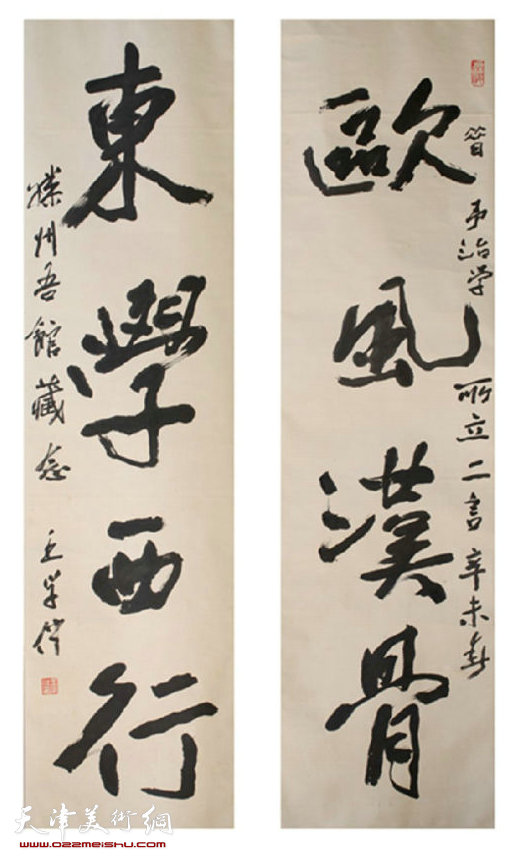 歐風漢骨
昔予治学所立二言辛未春
東學西行
滕州吾館藏念 王学仲
天津美術網
www.022meishu.com